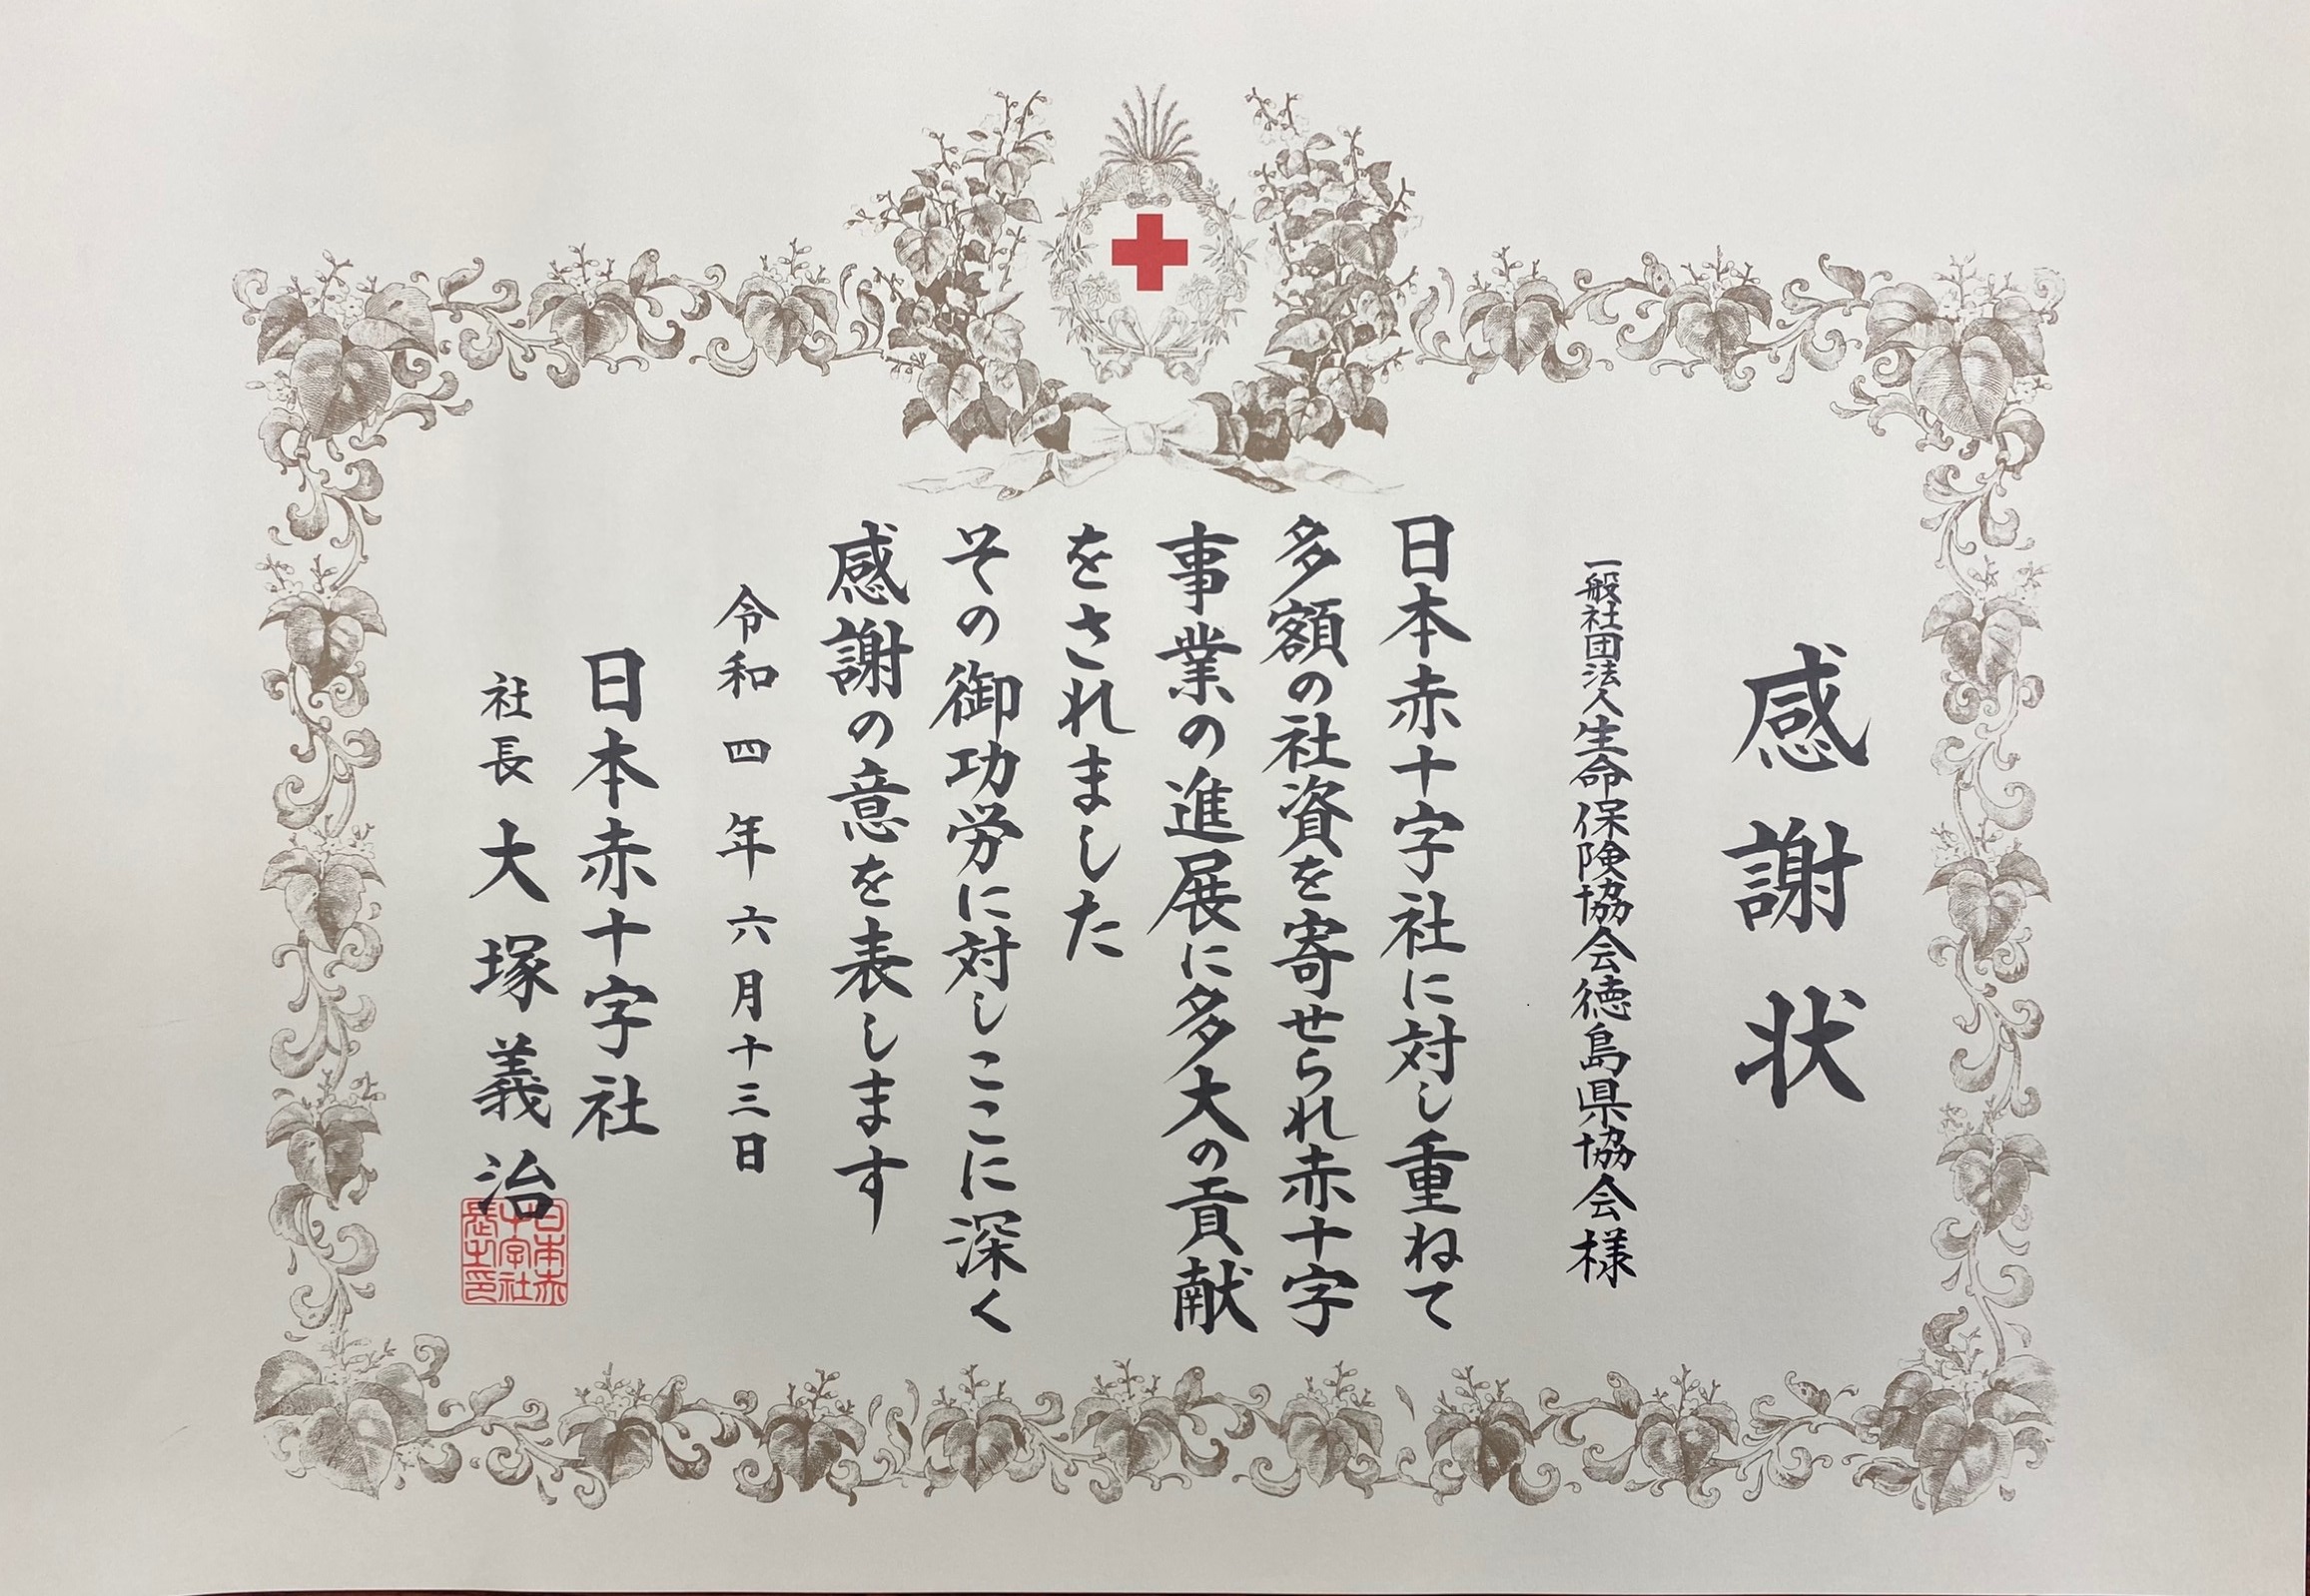 感謝状
一般社団法人生命保険協会徳島県協会様
日本赤十字社に対し重ねて
多額の社資を寄せられ赤十字
事業の進展に多大の貢献
をされました
その御功労に対しここに深く
感謝の意を表します
令和四年六月十三日
日本赤十字社
社長 大塚義治
日本赤
十字社
長之印